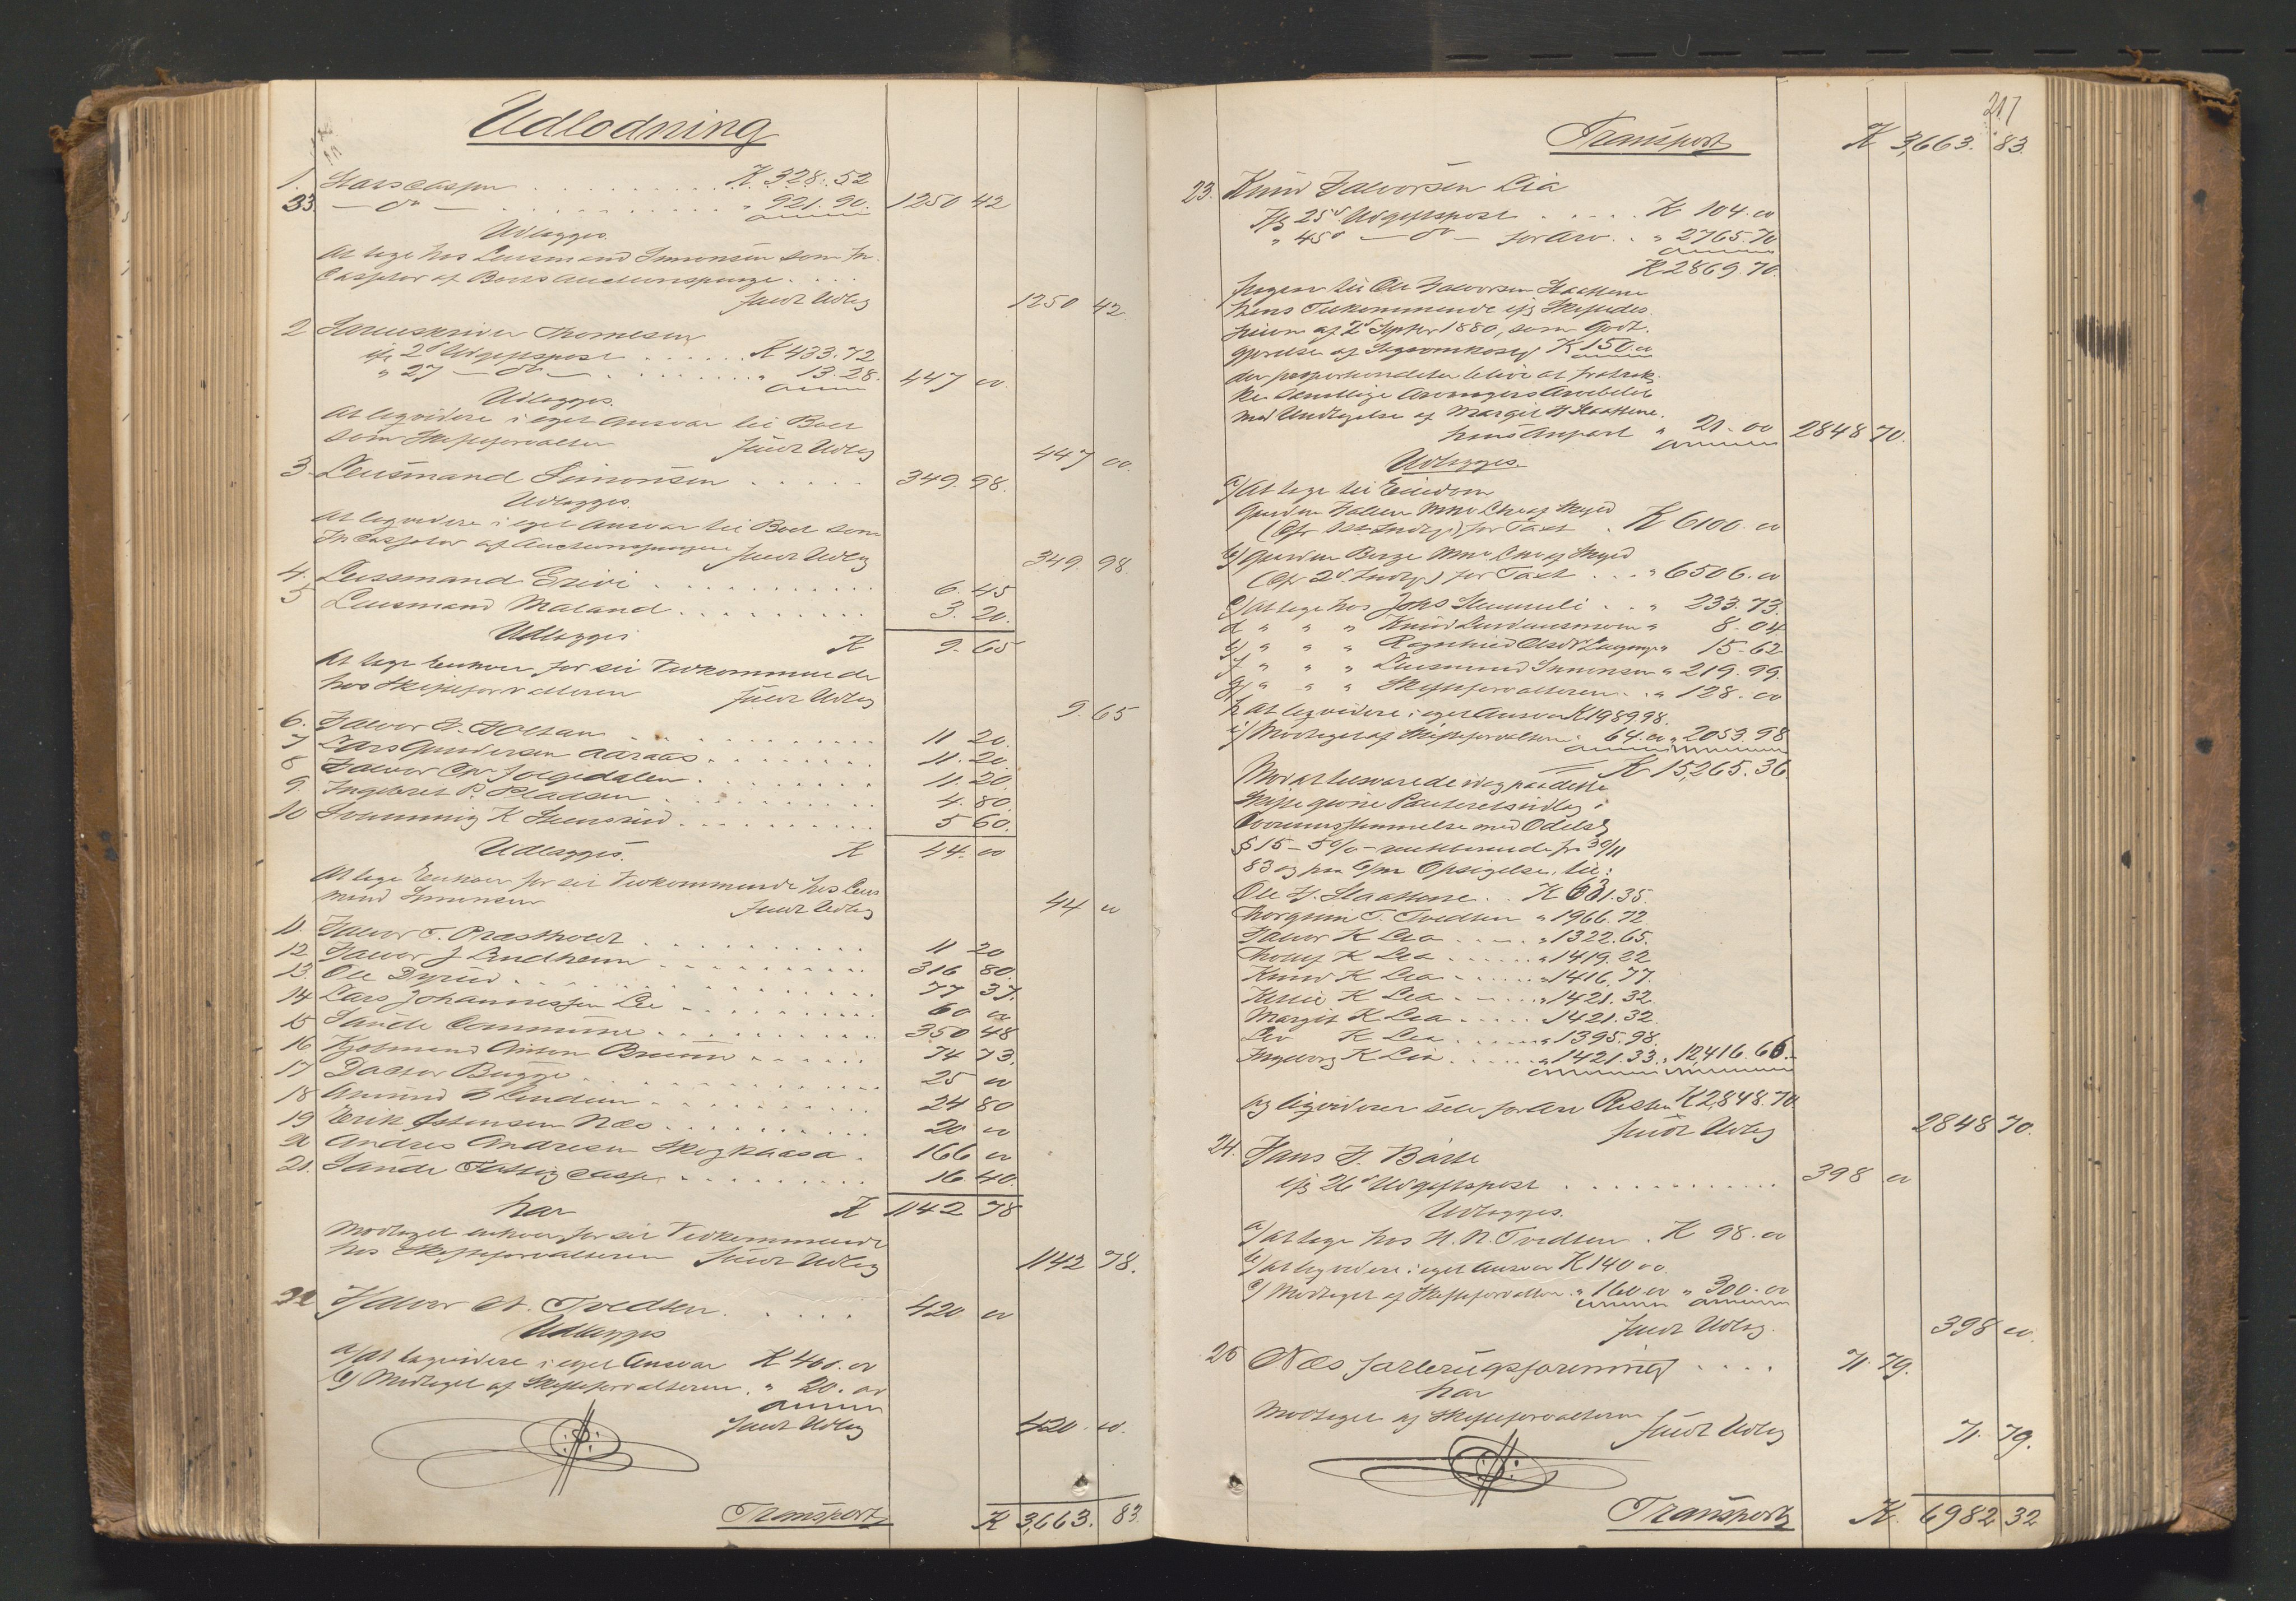 Udlodning
1. Statscassen . . . . . . . . K. 328. 52
33. — do — . . . . . . . . . . . " 921. 90. 1250 42
Udlægges.
At tage hos Lensmand Simonsen som In-
cassator af Boets Auctionspenge . . .
Fuldt Udlæg 1250 42
2 Sorenskriver Thomesen
efr 2d Udgiftspost . . . . . . K 433. 72
" 27 — do — . . . . . . . . . " 13. 28. 447 00.
Udlægges.
At liqvidere i eget Ansvar til Boet
som Skifteforvalter Fuldt Udlæg 447 00.
3. Lensmand Simonsen . . . . . 349. 98.
Udlægges.
At liqvidere i eget Ansvar til Boet som
Incassator af Auctionspengene Fuldt Udlæg 349. 98.
4. Lensmand Grivi . . . . . . . . . 6. 45
5 Lensmand Maland . . . . . . . . 3. 20.
Udlægges K 9. 65
At tage Enhver for sit Vedkommende
hos Skifteforvalteren Fuldt Udlæg 9. 65
6. Halvor H. Holtan . . . . . . . . 11 20.
7 Lars Gundersen Aaraas . . . . . . 11. 20.
8 Halvor Chr. Jolgedalen . . . . . . 11. 20.
9. Ingebret P. Pladsen . . . . . . . . 4. 80.
10 K Stensrud . . . . . . . . 5 60.
Udlægges. K 44. 00
At tage Enhver for sit Vedkommende hos Lens
mand Simonsen Fuldt Udlæg 44 00
11. Halvor T. Præstholdt . . . . . . . . 11 20
12 Halvor J Lindheim . . . . . . . . 316 80.
13. Ole Dyrud . . . . . . . . . . . 77 37.
14 Lars Johannessen Lie . . . . . . . 60 00
15 Saude Commune . . . . . . . . . 350 48
16 Kjøbmand Anton Bruun . . . . . . 74 73.
17 Doctor Bugge . . . . . . . . . . 25 00
18 Amund S Lindum . . . . . . . . 24 80
19 Erik Østensen Næs . . . . . . . . 20 00
20 Andres Andresen Skogkaasa . 166 00
21. Saude Fattigcasse . . . . . . . . . 16. 40.
har K 1142 78
Modtaget enhver for sit Vedkommende
hos Skifteforvalteren Fuldt Udlæg 1142 78.
22 Halvor N. Tvedten . . . . . 420 00
Udlægges
a/ At liqvidere i eget Ansvar K 400. 00
b) Modtaget af Skifteforvalteren. " 20. 00
Fuldt Udlæg 420 00.
Transport K 3,663. 83.
217
Transport K 3,663. 83.
23. Knud Halvorsen Lia
Efr 25d Udgiftspost . . . . . K 104. 00
" 45d — do — for Arv . . " 2765. 70
K 2869. 70.
hvoraf til Ole Halvorsen Staathene
hans Tilkommende efr Skiftedes.
sionen af 2d Septbr 1880, som Godt-
gjørelse af Sagsomkostn K 150. 00
der proportionaliter blive at fratræk-
ke samtlige Arvingers Arvebeløb
med Undtagelse af Margit H Staathene.
hans Anpart " 21. 00 2848 70.
Udlægges.
a) At tage til Eiendom
Gaarden Hallen M No Lno af Skyld
(Cfr 1ste Indtgt) for Taxt . K 6100. 00
b) Gaarden Berge M No Lno af Skyld
(Cfr 2d Indtgt) for Taxt . . . " 6506. 00
c) At tage hos Johs Slemmeli . . " 233. 73.
d " " " Knud " 8. 04
e) " " " Ragnhild Olsdtr " 15. 62
f " " " Lensmand Simonsen " 219. 99.
g) " " " Skifteforvalteren . . " 128. 00
h At liqvidere i eget Ansvar K 1989.98.
i) Modtaget af Skifteforvalteren " 64. 00 " 2053. 98
K 15,265. 36
Mod at tilsvare de idag paa dette
Skifte givne Panteretsudlæg i
Overensstemmelse med Odelsl
§ 15 — 5 % rentebærende fra 30/11
83 og paa 6 Mdr Opsigelse, til:
Ole H. Staathene . . K 631. 35.
Thorgrim T. Tvedten " 1966. 72
Halvor K Lia . . . . " 1322. 65.
Thollef K Lia . . . . . " 1419. 22
Knud K Lia . . . . . . " 1416. 77.
Kittil K Lia . . . . . . " 1421. 32.
Margit K Lia . . . . . 1421. 32.
Liv K Lia . . . . . . . " 1395. 98.
Ingeborg K Lia . . . . . " 1421. 33. " 12,416. 66.
og liqviderer selv for Arv Resten K 2,848. 70
Fuldt Udlæg 2848 70.
24. Hans H. Bårte
efr 26d Udgiftspost . . . . . . . . . . . . 398 00
Udlægges.
a) At tage hos H. N. Tvedten . K 98. 00
b) At liqvidere i eget Ansvar K 140 00.
c) Modtaget af Skifteforvalteren " 160 00 " 300. 00
Fuldt Udlæg. 398 00.
25 Næs Forbrugsforening . . . . 71. 79.
har
Modtaget af Skifteforvalteren Fuldt Udlæg 71. 79.
Transport K. 6982 32